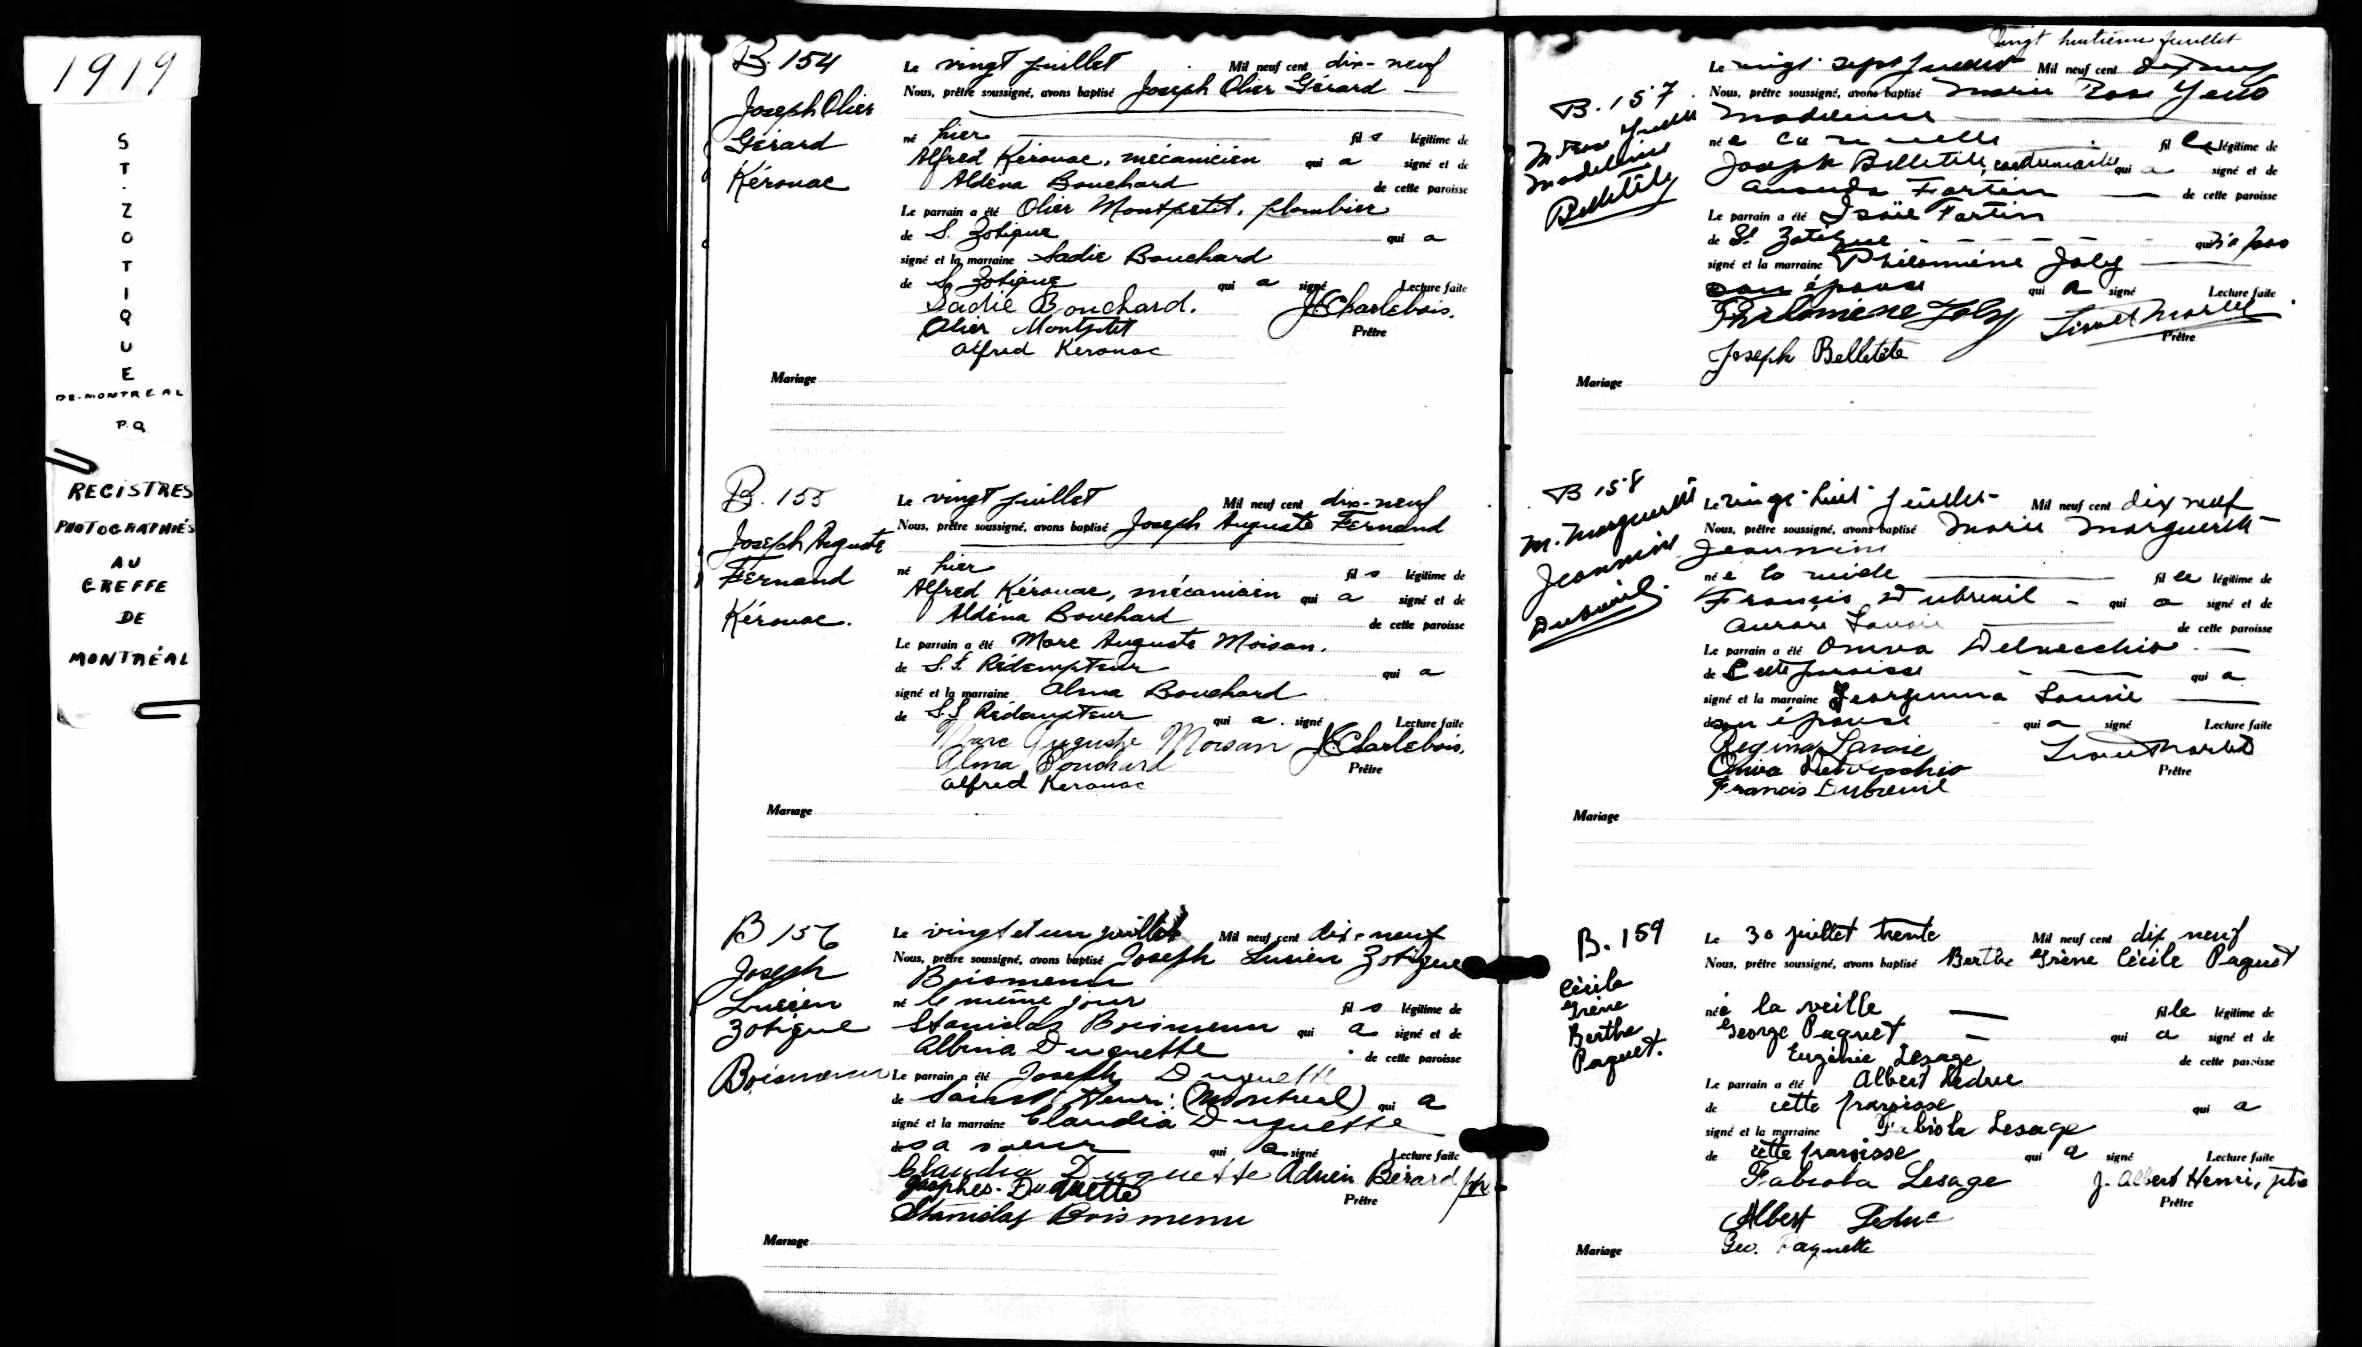 1919
ST. ZOTIQUE
DE-MONTREAL
P.Q.
REGISTRES
PHOTOGRAPHIÉS
AU
GREFFE
DE
MONTRÉAL
B. 154
Joseph Olier
Gérard
Kérouac
Le vingt juillet Mil neuf cent dix-neuf
Nous, prêtre soussigné, avons baptisé Joseph Olier Gérard
né hier fils légitime de
Alfred Kérouac, mécanicien qui a signé et de
Aldéna Bouchard de cette paroisse
Le parrain a été Olier Montpetit, plombier
de S. Zotique qui a
signé et la marraine Sadie Bouchard
de S. Zotique qui a signé Lecture faite
Sadie Bouchard. J.E. Charlebois.
Olier Montpetit Prêtre
Alfred Kerouac
Mariage
B. 155
Joseph Auguste
Fernand
Kérouac.
Le vingt juillet Mil neuf cent dix-neuf
Nous, prêtre soussigné, avons baptisé Joseph Auguste Fernand
né hier fils légitime de
Alfred Kérouac, mécanicien qui a signé et de
Aldéna Bouchard de cette paroisse
Le parrain a été Marc Auguste Moisan.
de S.S. Rédempteur qui a
signé et la marraine Alma Bouchard
de S.S Rédempteur qui a signé Lecture faite
Marc Auguste Moisan J.E. Charlebois.
Alma Bouchard Prêtre
Alfred Kerouac
Mariage
B 156
Joseph
Lucien
Zotique
Boismenu
Le vingt et un juillet Mil neuf cent dix-neuf
Nous, prêtre soussigné, avons baptisé Joseph Lucien Zotique
Boismenu
né le même jour fils légitime de
Stanislas Boismenu qui a signé et de
Albina Duquette de cette paroisse
Le parrain a été Joseph Duquette
de Saint Henri (Montreal) qui a
signé et la marraine Claudia Duquette
sa soeur qui a signé Lecture faite
Claudia Duquette Adrien Bérard ptre
Josephes. Duquette Prêtre
Stanislas Boismenu
Mariage
vingt huitième juillet
B. 157
M. Rose
Madeleine
Belletête
Le vingt sept juillet Mil neuf cent dix neuf
Nous, prêtre soussigné, avons baptisé Marie Rose
Madeleine
née fille légitime de
Joseph Belletête, qui a signé et de
Amanda Fortin de cette paroisse
Le parrain a été Isaïe Fortin
de St Zotique qui n'a pas
signé et la marraine Philomène Joly
son épouse qui a signé Lecture faite
Philomene Joly
Prêtre
Joseph Belletete
Mariage
B 158
M. Marguerite
Jeannine
Dubreuil
Le vingt-huit juillet Mil neuf cent dix neuf
Nous, prêtre soussigné, avons baptisé Marie Marguerite
Jeannine
née la veille fille légitime de
Francis Dubreuil qui a signé et de
Aurore Lavoie de cette paroisse
Le parrain a été Omiva Delvecchio
de Cette paroisse qui a
signé et la marraine Georgianna Lavoie
son épouse qui a signé Lecture faite
Regina Lavoie
Delvecchio Prêtre
Francis Dubreuil
Mariage
B. 159
Cécile
Irène
Berthe
Paquet.
Le 30 juillet trente Mil neuf cent dix neuf
Nous, prêtre soussigné, avons baptisé Berthe Irène Cécile Paquet
née la veille fille légitime de
George Paquet qui a signé et de
Eugénie Lesage de cette paroisse
Le parrain a été Albert Leduc
de cette paroisse qui a
signé et la marraine Fabiola Lesage
de cette paroisse qui a signé Lecture faite
Fabiola Lesage J. Albert Henri, ptre
Prêtre
Albert Leduc
Geo. Paquette
Mariage